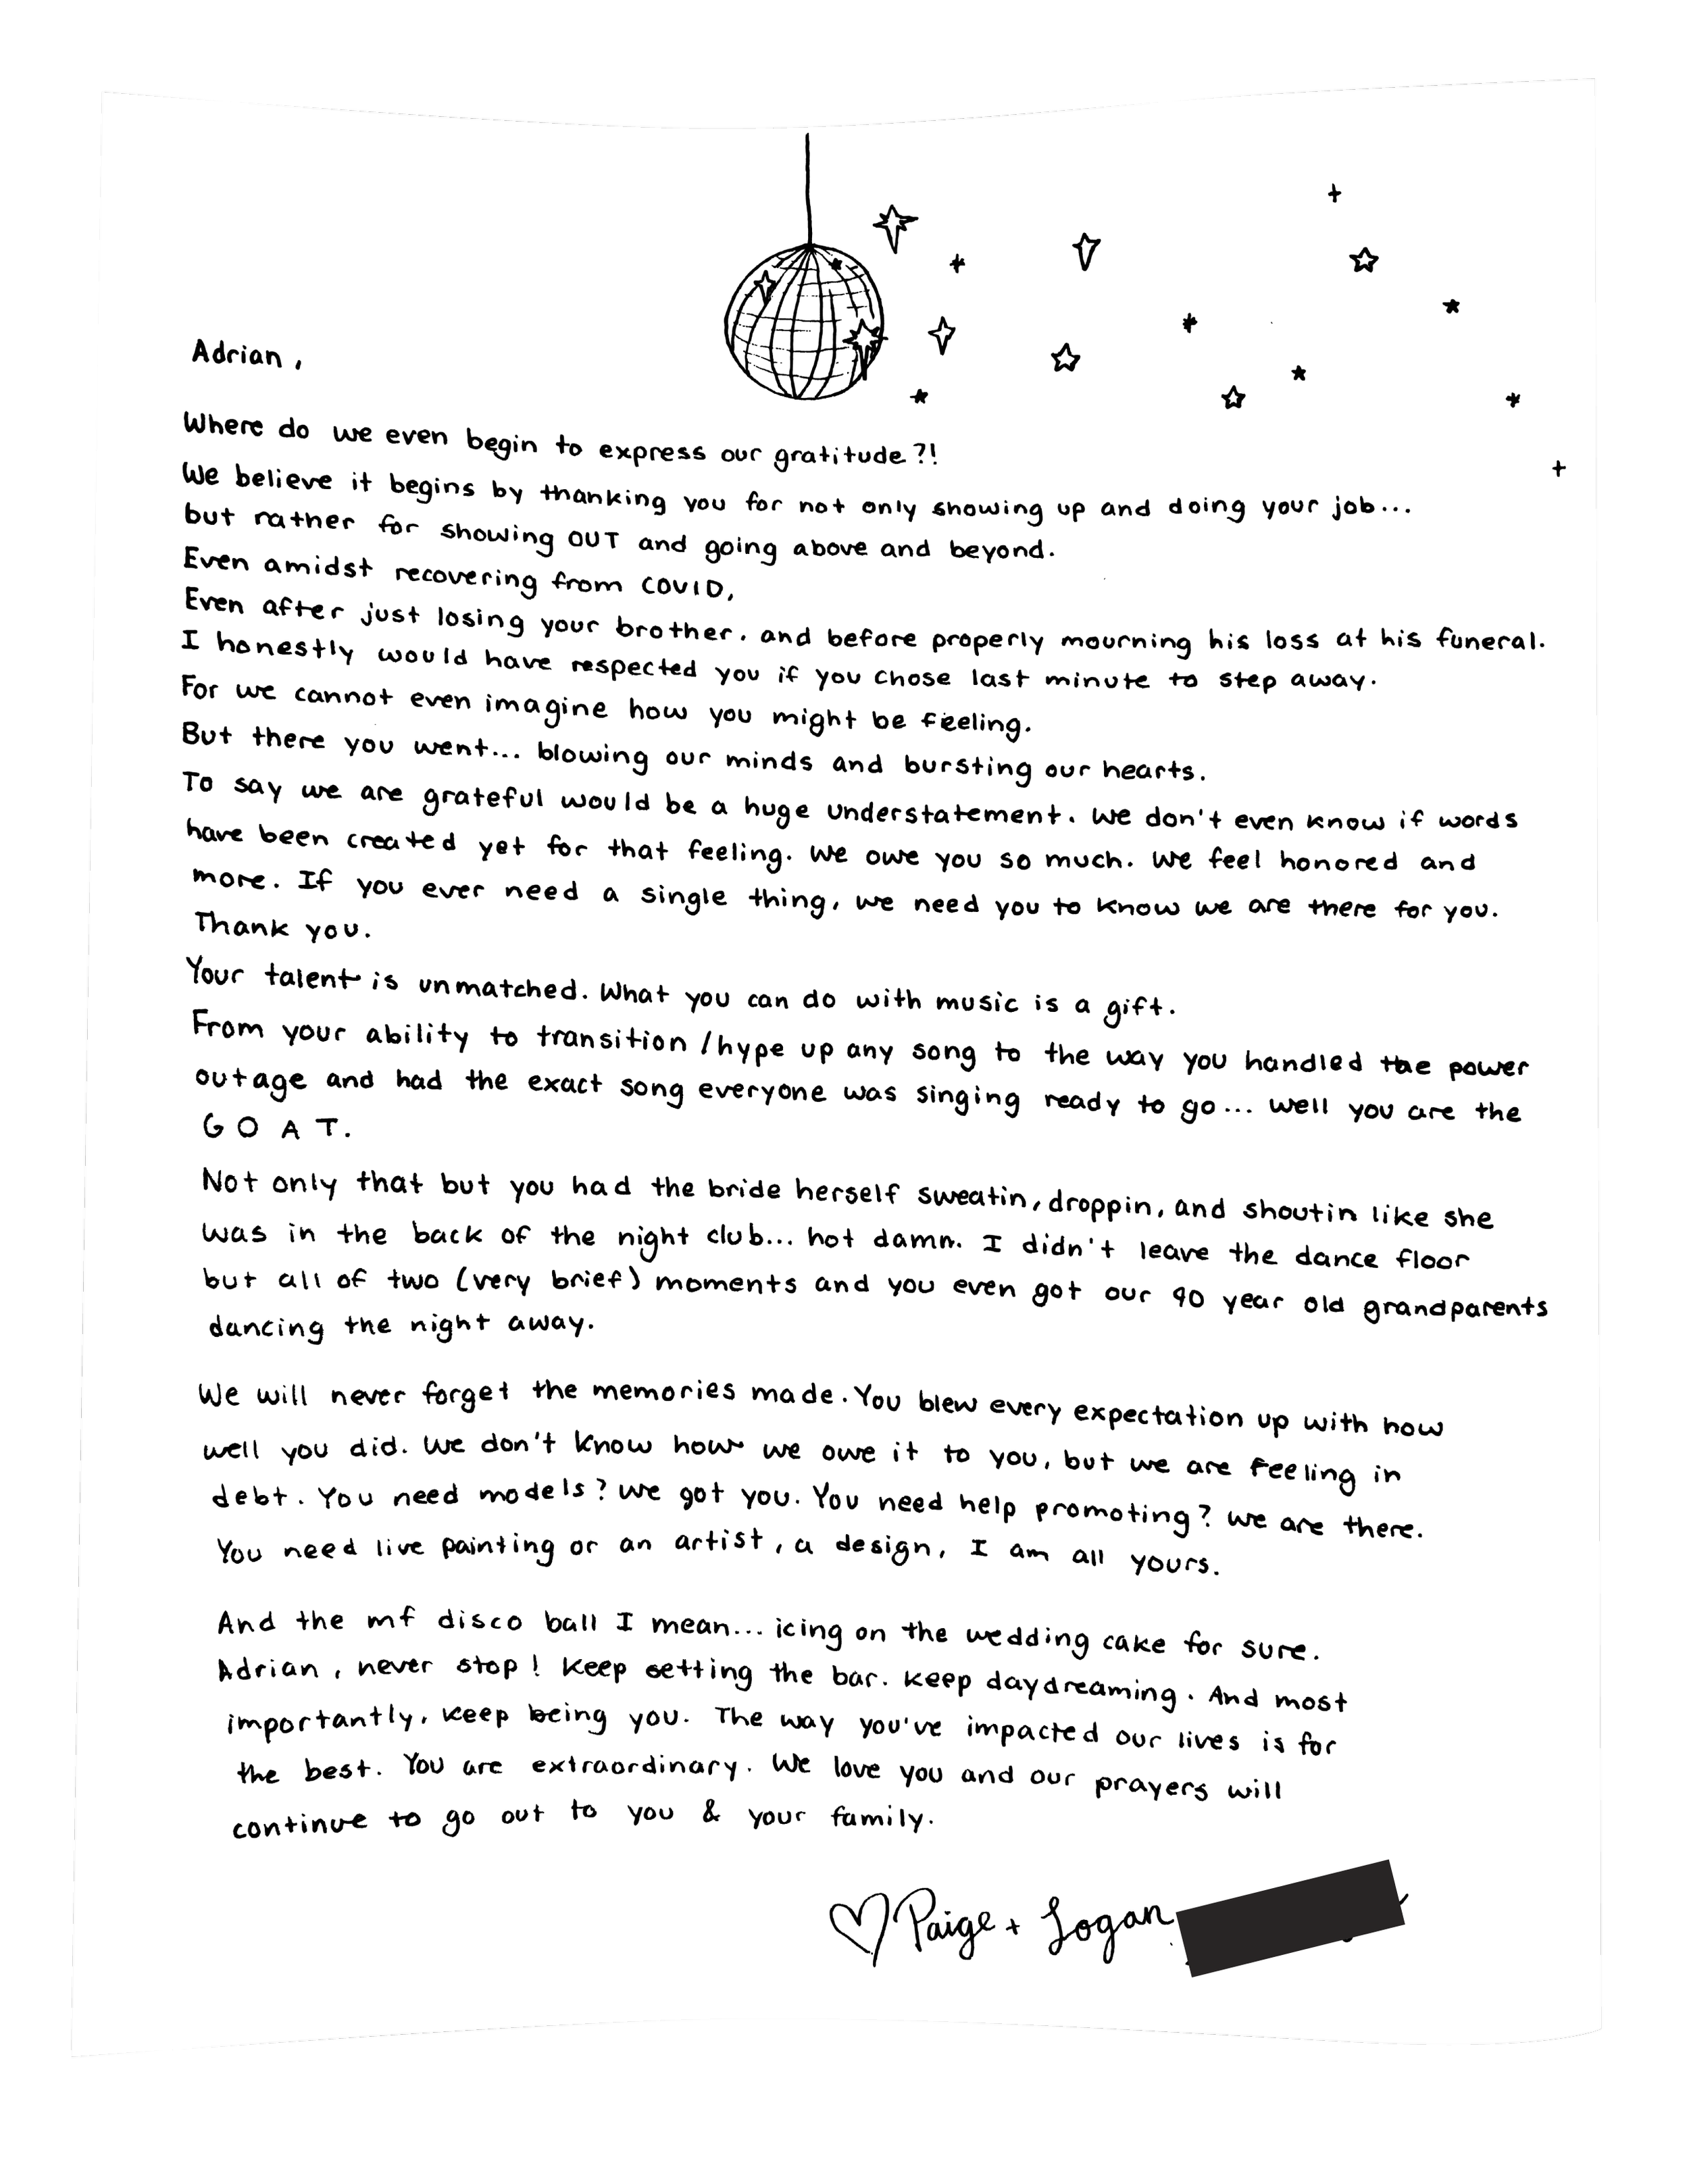 Adrian,
Where do we even begin to express our gratitude?!
We believe it begins by thanking you for not only showing up and doing your job...
but rather for showing OUT and going above and beyond.
Even amidst recovering from COVID,
Even after just losing your brother, and before properly mourning his loss at his funeral.
I honestly would have respected you if you chose last minute to step away.
For we cannot even imagine how you might be feeling.
But there you went... blowing our minds and bursting our hearts.
To say we are grateful would be a huge understatement. We don't even know if words
have been created yet for that feeling. We owe you so much. We feel honored and
more. If you ever need a single thing, we need you to know we are there for you.
Thank you.
Your talent is unmatched. What you can do with music is a gift.
From your ability to transition/hype up any song to the way you handled the power
outage and had the exact song everyone was singing ready to go... well you are the
G O A T.
Not only that but you had the bride herself sweatin, droppin, and shoutin like she
was in the back of the night club... hot damn. I didn't leave the dance floor
but all of two (very brief) moments and you even got our 90 year old grandparents
dancing the night away.
We will never forget the memories made. You blew every expectation up with how
well you did. We don't know how we owe it to you, but we are feeling in
debt. You need models? We got you. You need help promoting? We are there.
You need live painting or an artist, a design, I am all yours.
And the mf disco ball I mean... icing on the wedding cake for sure.
Adrian, never stop! Keep setting the bar. Keep daydreaming. And most
importantly, keep being you. The way you've impacted our lives is for
the best. You are extraordinary. We love you and our prayers will
continue to go out to you & your family.
♡ Paige + Logan